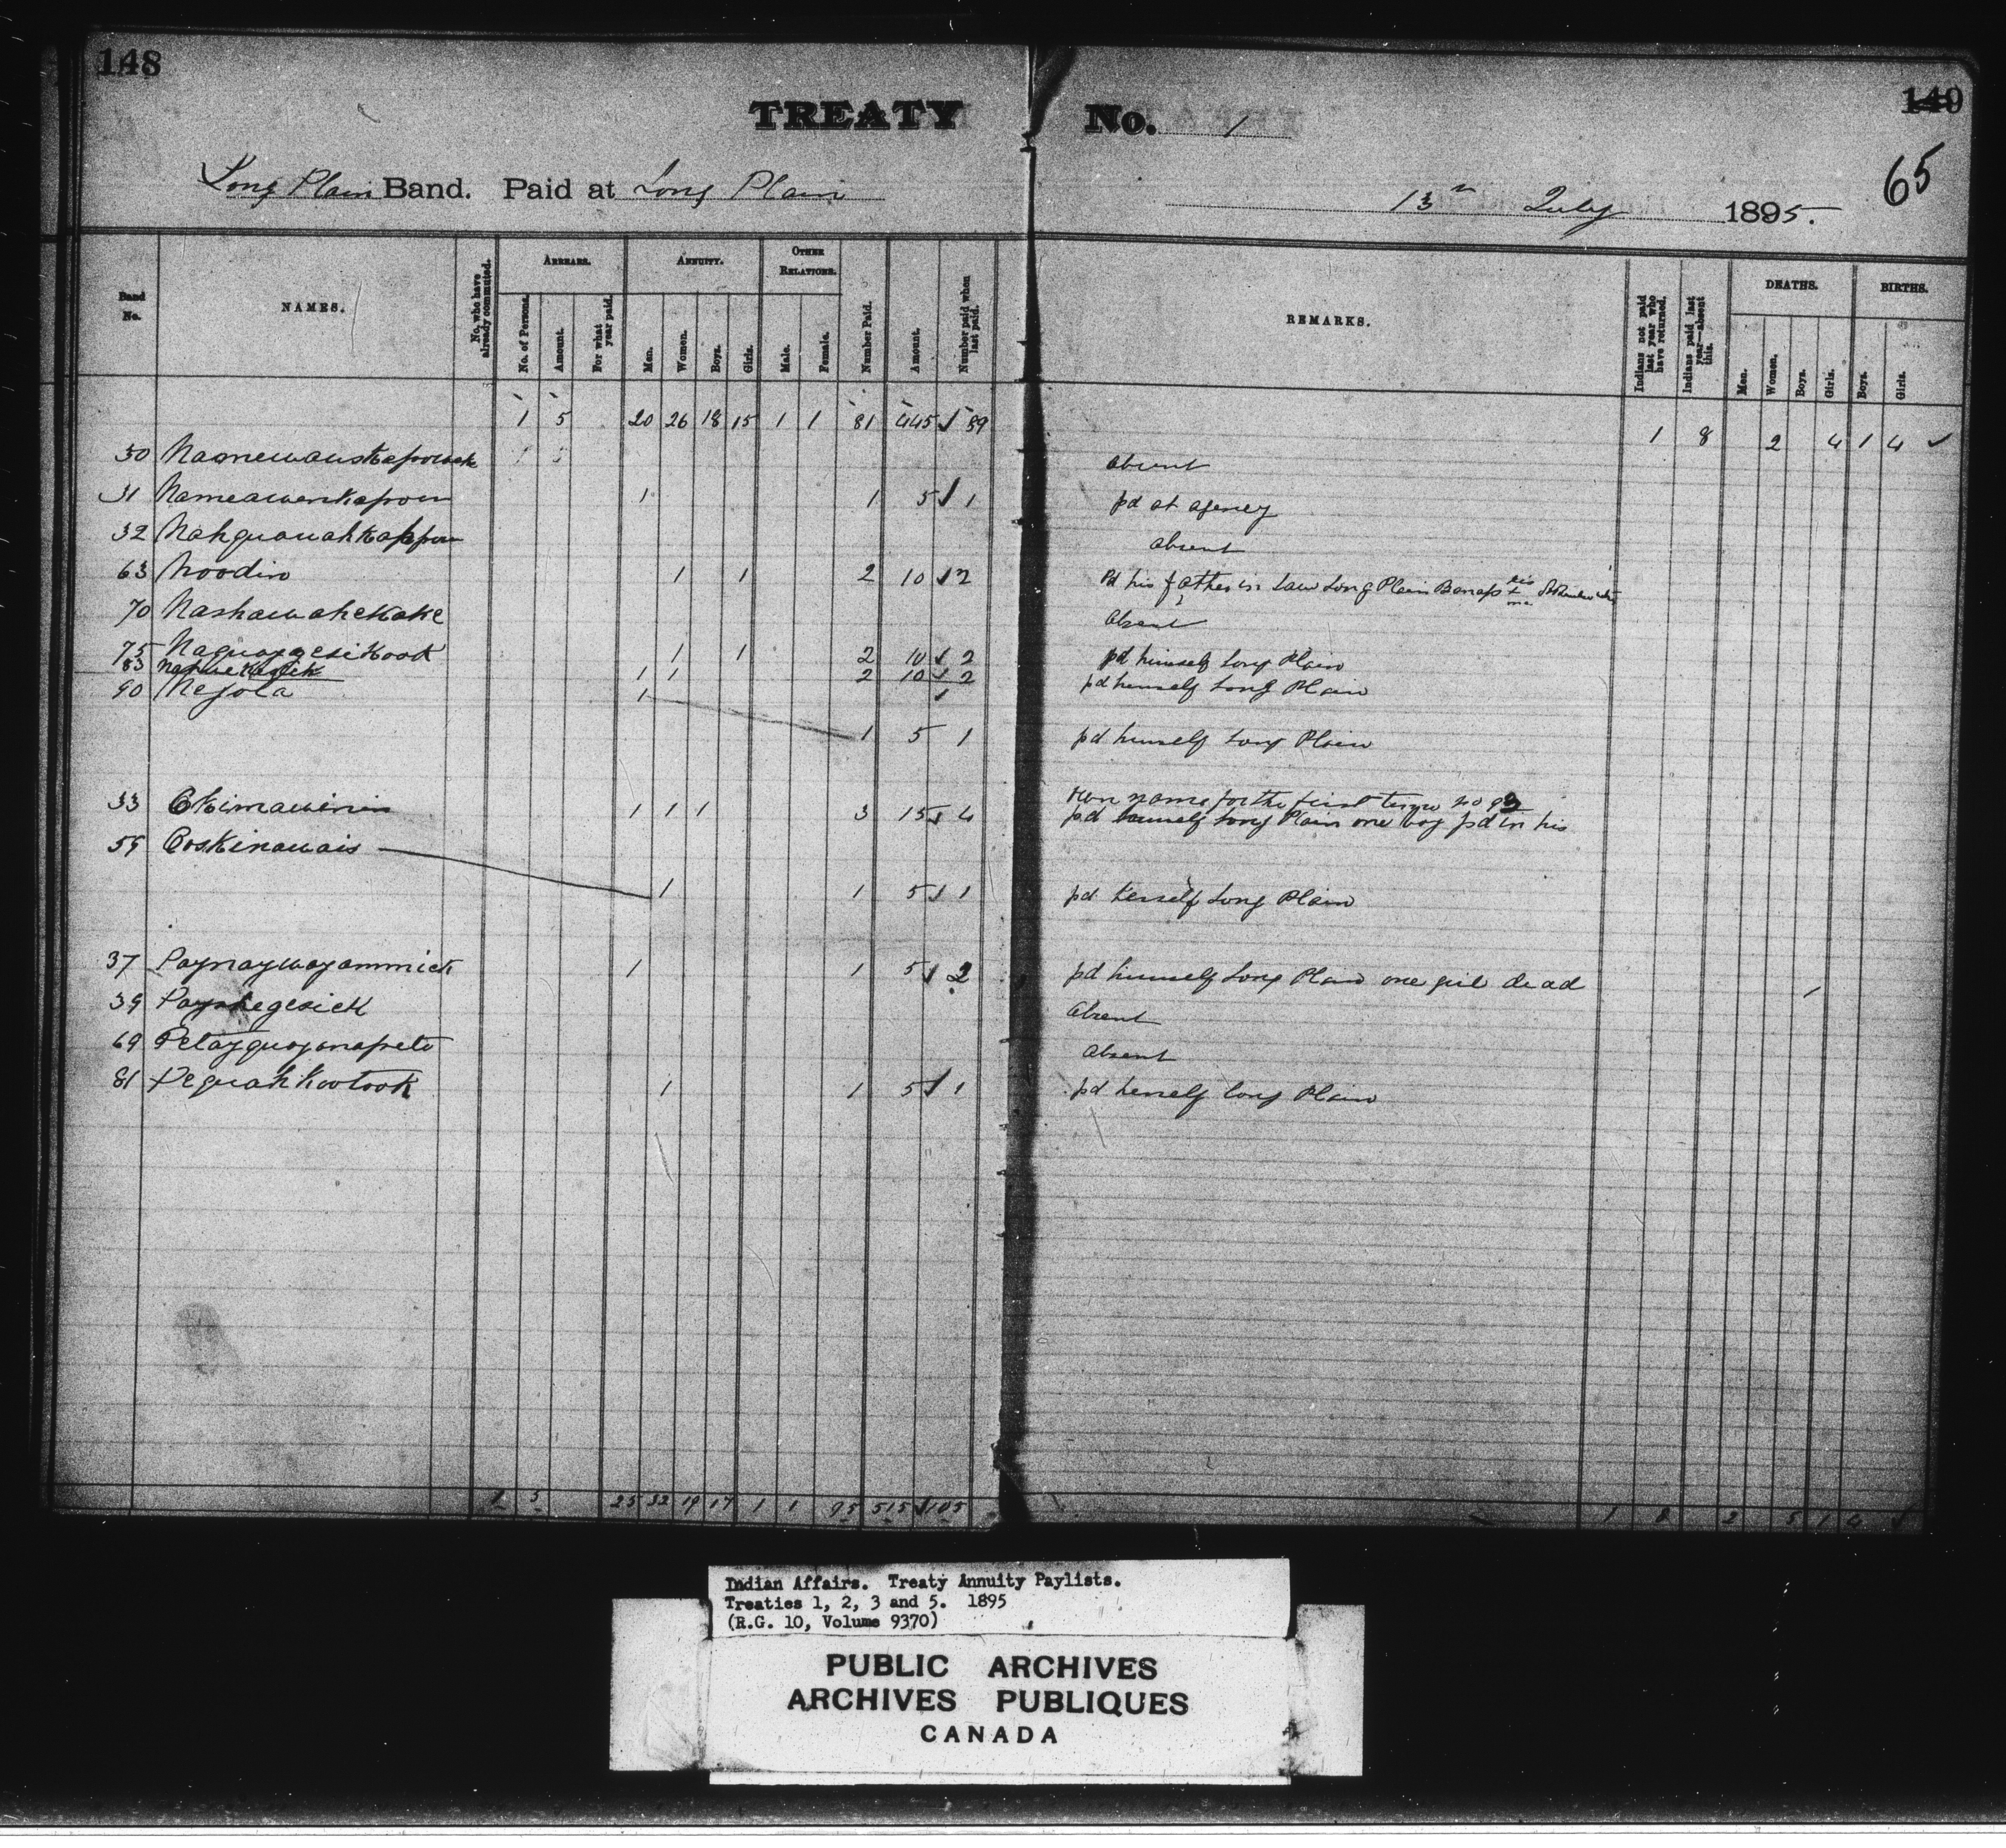 148
149
65
TREATY No. 1
Long Plain Band. Paid at Long Plain 13th July 1895.
Band No. NAMES. No. who have already commuted. ARREARS. No. of Persons. Amount. For what year paid. ANNUITY. Men. Women. Boys. Girls. OTHER RELATIONS. Male. Female. Number Paid. Amount. Number paid when last paid. REMARKS. Indians not paid last year who have returned. Indians paid last year—absent this. DEATHS. Men. Women. Boys. Girls. BIRTHS. Boys. Girls.
1 5 20 26 18 15 1 1 81 445 ✓ 89 1 8 2 4 1 4 ✓
30 absent
31 Nameawenkapow 1 1 5 ✓ 1 pd at agency
32 Nahguouahkappow absent
63 Noodin 1 1 2 10 ✓ 2 Pd his father in law Long Plain his x
70 Nashawahekake Absent
75 Naguaygesikook 1 1 2 10 ✓ 2 pd himself Long Plain
83 1 1 2 10 ✓ 2 pd himself Long Plain
90 Nejola 1 ✓
1 5 1 pd himself Long Plain
own name for the first time no 93
33 Okimawinin 1 1 1 3 15 ✓ 4 pd himself Long Plain one boy pd in his
59 Ooskinawais
1 1 5 ✓ 1 pd herself Long Plain
37 Paynaywayammick 1 1 5 ✓ 2 pd himself Long Plain one girl dead 1
39 Payshegesick Absent
69 Petayguayanapeto Absent
81 Peguahkootook 1 1 5 ✓ 1 pd herself Long Plain
1 5 25 32 19 17 1 1 95 515 ✓ 105 1 8 2 5 1 4 ✓
Indian Affairs. Treaty Annuity Paylists.
Treaties 1, 2, 3 and 5. 1895
(R.G. 10, Volume 9370)
PUBLIC ARCHIVES
ARCHIVES PUBLIQUES
CANADA